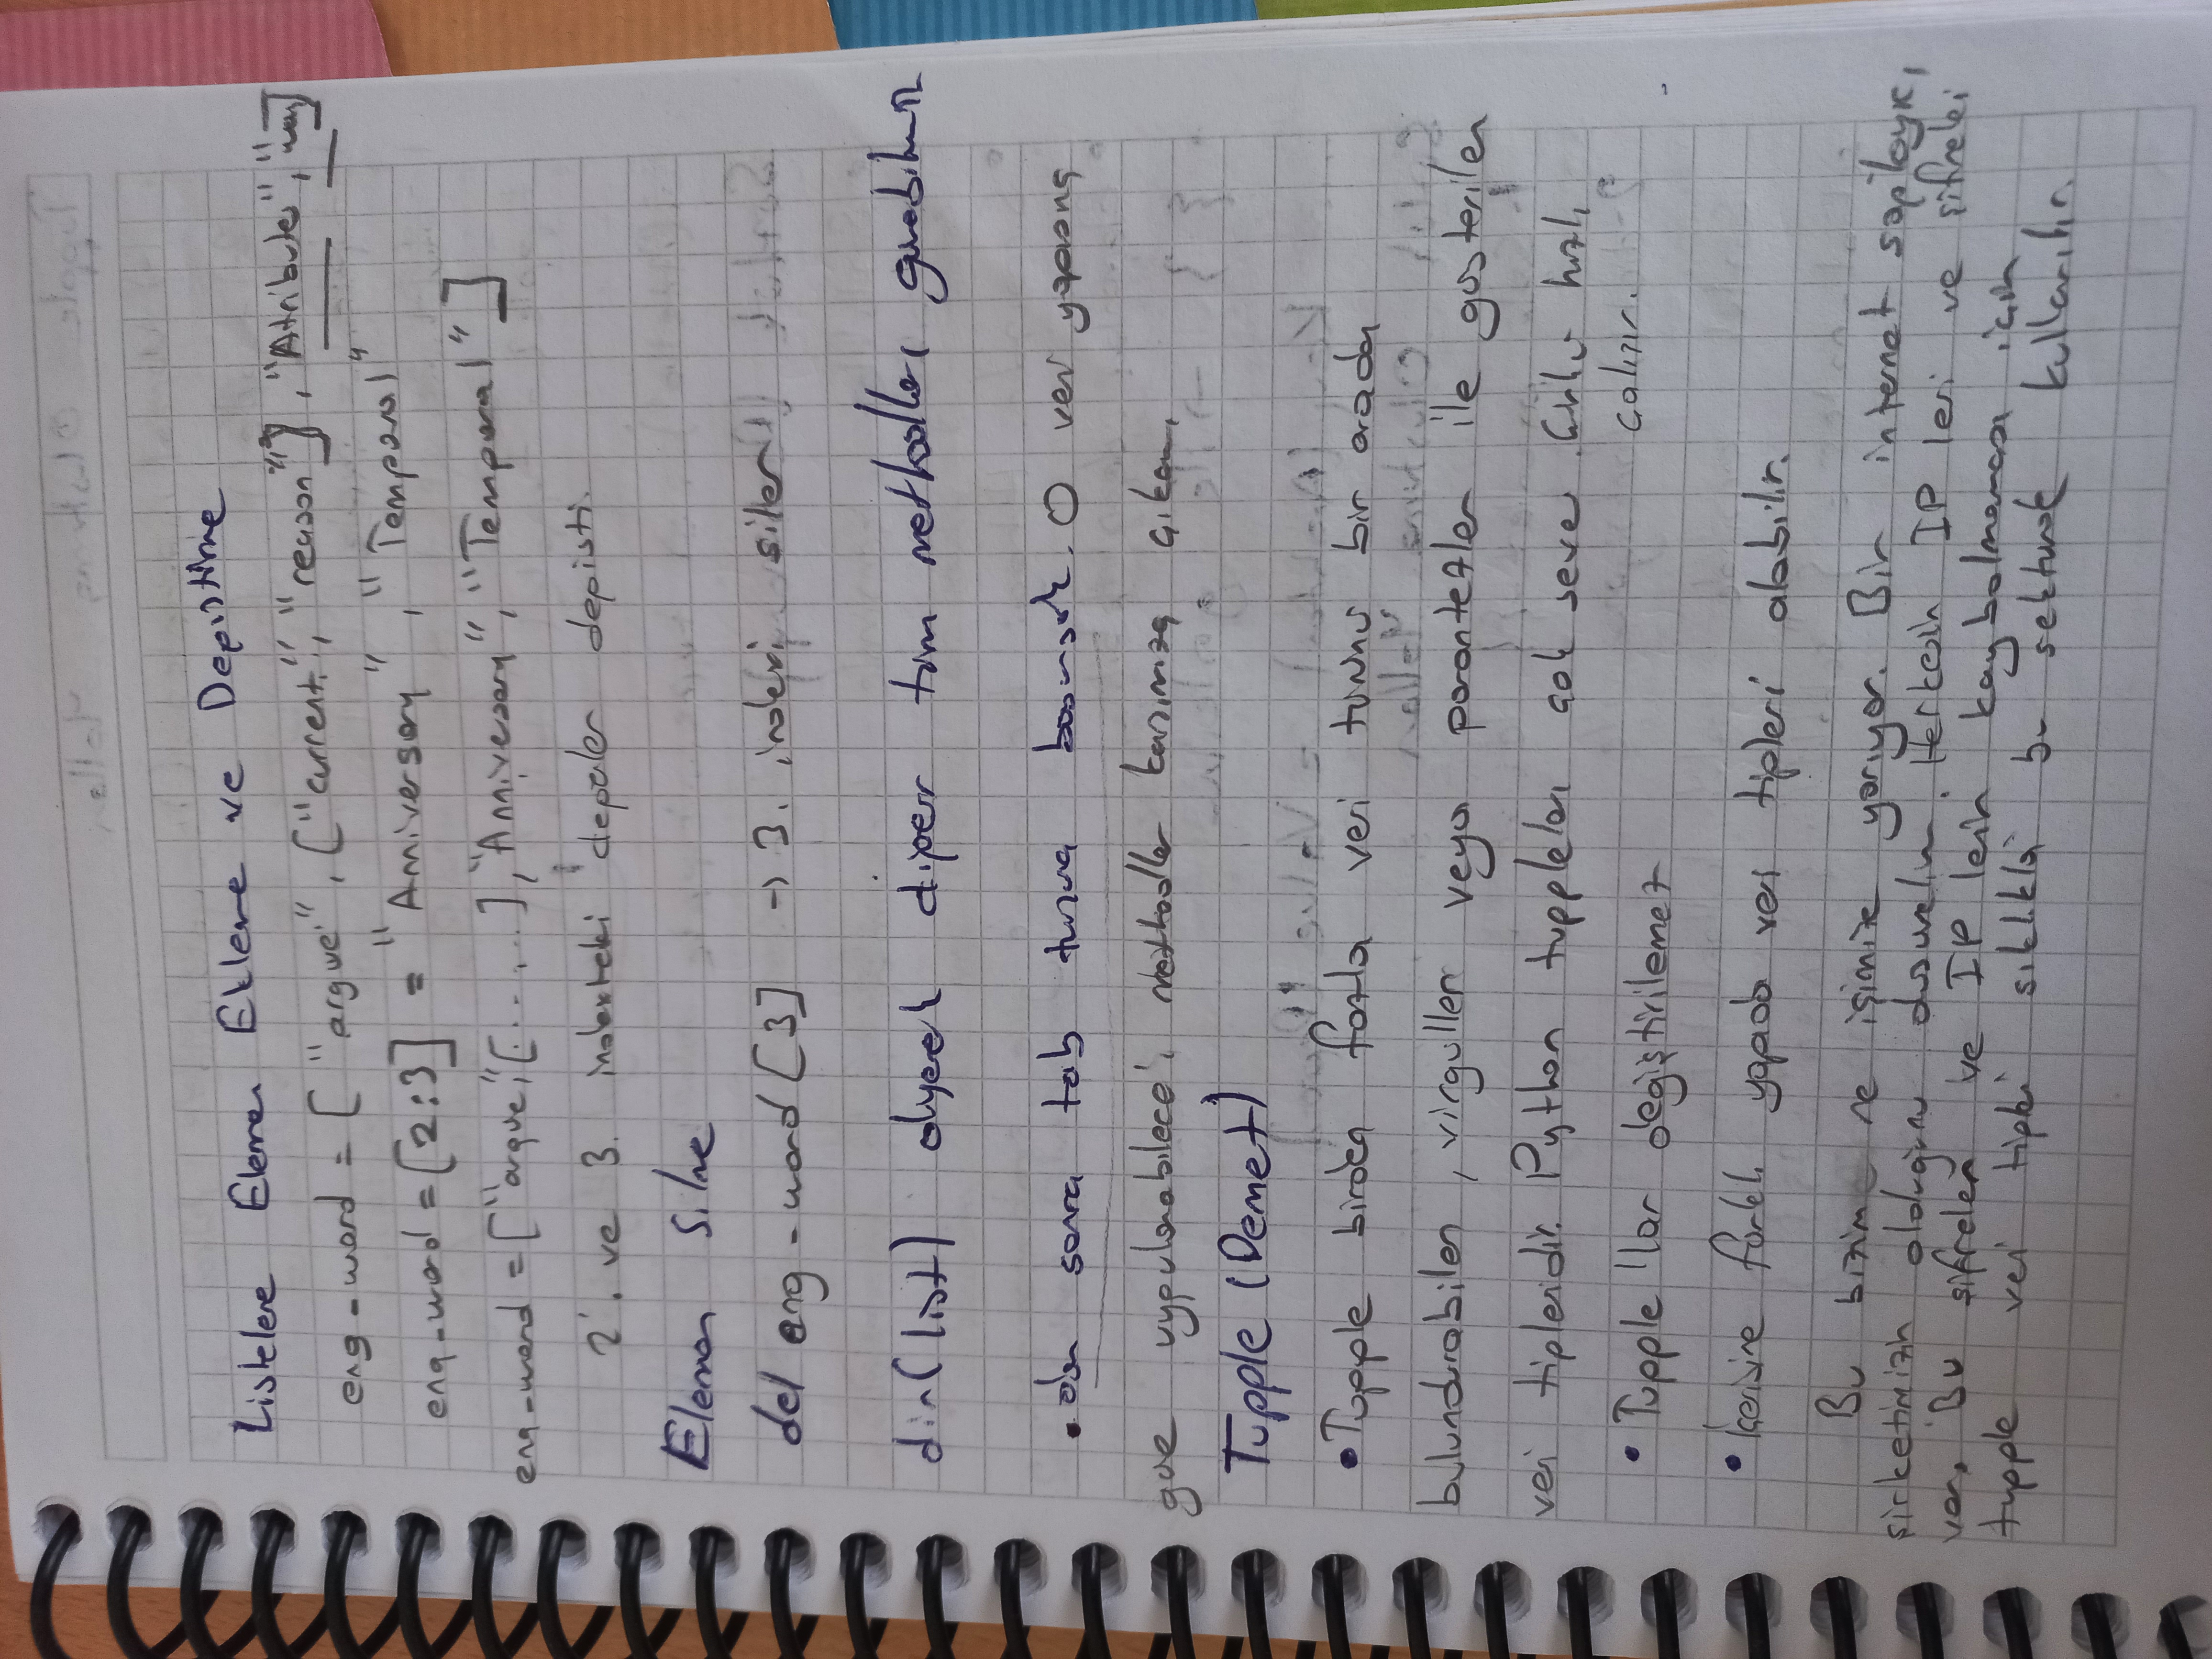 Listelere Eleman Ekleme ve Degistirme
eng-word = [ "argue", ["current", "reason"], "Atribute", "way"]
eng-word = [2:3] = "Anniversary", "Temporal"
eng-word = ["argue", [...,...], "Anniversary", "Temporal"]
2. ve 3. indexteki degerler degisti.
Eleman Silme
del eng-word [3] → 3. indexi siler
dir(list) diyerek diger tüm methodları gorebiliriz
. dan sonra tab tusuna basmak. O veri yapısına
gore uygulanabilecegi methodlar karsımıza çıkar.
Tupple (Demet)
• Tupple birden fazla veri turunu bir arada
bulundurabilen, virguller veya parantezler ile gosterilen
veri tipleridir. Python tuppleları çok sever. Çünkü hızlı
çalışır.
• Tupple 'lar değiştirilemez
• İçerisine farklı yapıda veri tipleri alabilir.
Bu bizim ne işimize yarıyor. Bir internet saglayıcı
şirketimizin olduğunu dusunelim. Herkesin IP leri ve şifreleri
var. Bu şifreler ve IP lerin kaybolmaması için
tupple veri tipleri sıklıkla bu sektorde kullanılır.